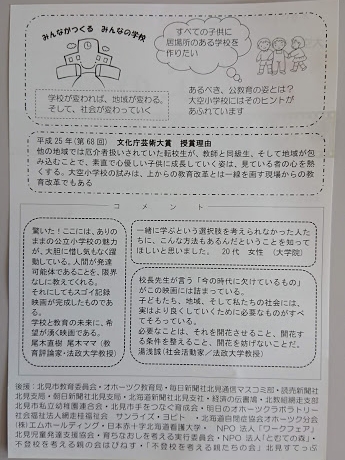 みんながつくる みんなの学校
すべての子供に
居場所のある学校を
作りたい
学校が変われば、地域が変わる。
そして、社会が変わっていく
あるべき、公教育の姿とは？
大空小学校にはそのヒントが
あふれています
平成25年(第68回) 文化庁芸術大賞 授賞理由
他の地域では厄介者扱いされていた転校生が、教師と同級生、そして地域が包
み込むことで、素直で心優しい子供に成長していく姿は、見ている者の心を熱
くする。大空小学校の試みは、上からの教育改革とは一線を画す現場からの教
育改革でもある
コメント
驚いた！ここには、ありの
ままの公立小学校の魅力
が、大胆に惜し気もなく躍
動している。人間が発達
可能体であることを、限界
なしに教えてくれる。
それにしてもスゴイ記録
映画が完成したものであ
る。
学校と教育の未来に、希
望が湧く映画だ。
尾木直樹 尾木ママ（教
育評論家・法政大学教授）
一緒に学ぶという選択肢を考えられなかった人た
ちに、こんな方法もあるんだということを知って
ほしいと思いました。 20代 女性 （大学院）
校長先生が言う「今の時代に欠けているもの」
がこの映画には詰まっている。
子どもたち、地域、そして私たちの社会には、
実はより良くしていくために必要なものがすべ
てそろっている。
必要なことは、それを開花させること、開花す
る条件を整えること、開花を妨げないことだ。
湯浅誠（社会活動家／法政大学教授）
後援：北見市教育委員会・オホーツク教育局・毎日新聞社北見通信マスコミ部・読売新聞社
北見支局・朝日新聞社北見支局・北海道新聞社北見支社・経済の伝書鳩・北教組網走支部
北見市私立幼稚園連合会・北見市手をつなぐ育成会・明日のオホーツクラボラトリー
社会福祉法人網走桂福祉会 サンライズ・ヨピト ・北海道自閉症協会オホーツク分会
(株)エムホールディング・日本赤十字北海道看護大学 ・NPO 法人「ワークフェア」
北見児童発達支援協会・育ちなおしを考える実行委員会・NPO 法人「とむての森」・
不登校を考える親の会はぴねす・「不登校を考える親たちの会」北見すてっぷ